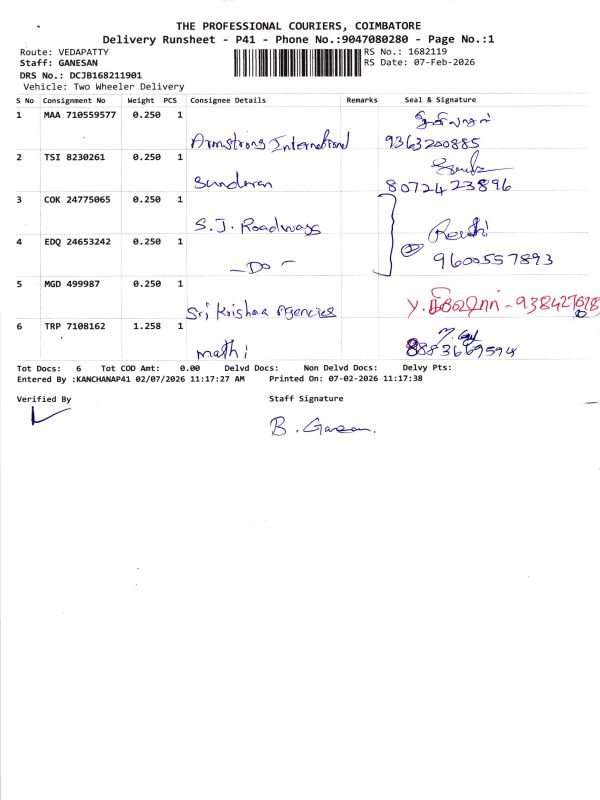 THE PROFESSIONAL COURIERS, COIMBATORE
Delivery Runsheet - P41 - Phone No.:9047080280 - Page No.:1
Route: VEDAPATTY RS No.: 1682119
Staff: GANESAN RS Date: 07-Feb-2026
DRS No.: DCJB168211901
Vehicle: Two Wheeler Delivery
S No Consignment No Weight PCS Consignee Details Remarks Seal & Signature
1 MAA 710559577 0.250 1
Armstrong International 9363200885
2 TSI 8230261 0.250 1
Sundaran 8072423896
3 COK 24775065 0.250 1
S.J. Roadways
4 EDQ 24653242 0.250 1
-Do- 9600557893
5 MGD 499987 0.250 1
Sri Krishna Agencies
6 TRP 7108162 1.258 1
mathi 8883669594
Tot Docs: 6 Tot COD Amt: 0.00 Delvd Docs: Non Delvd Docs: Delvy Pts:
Entered By :KANCHANAP41 02/07/2026 11:17:27 AM Printed On: 07-02-2026 11:17:38
Verified By Staff Signature
B.